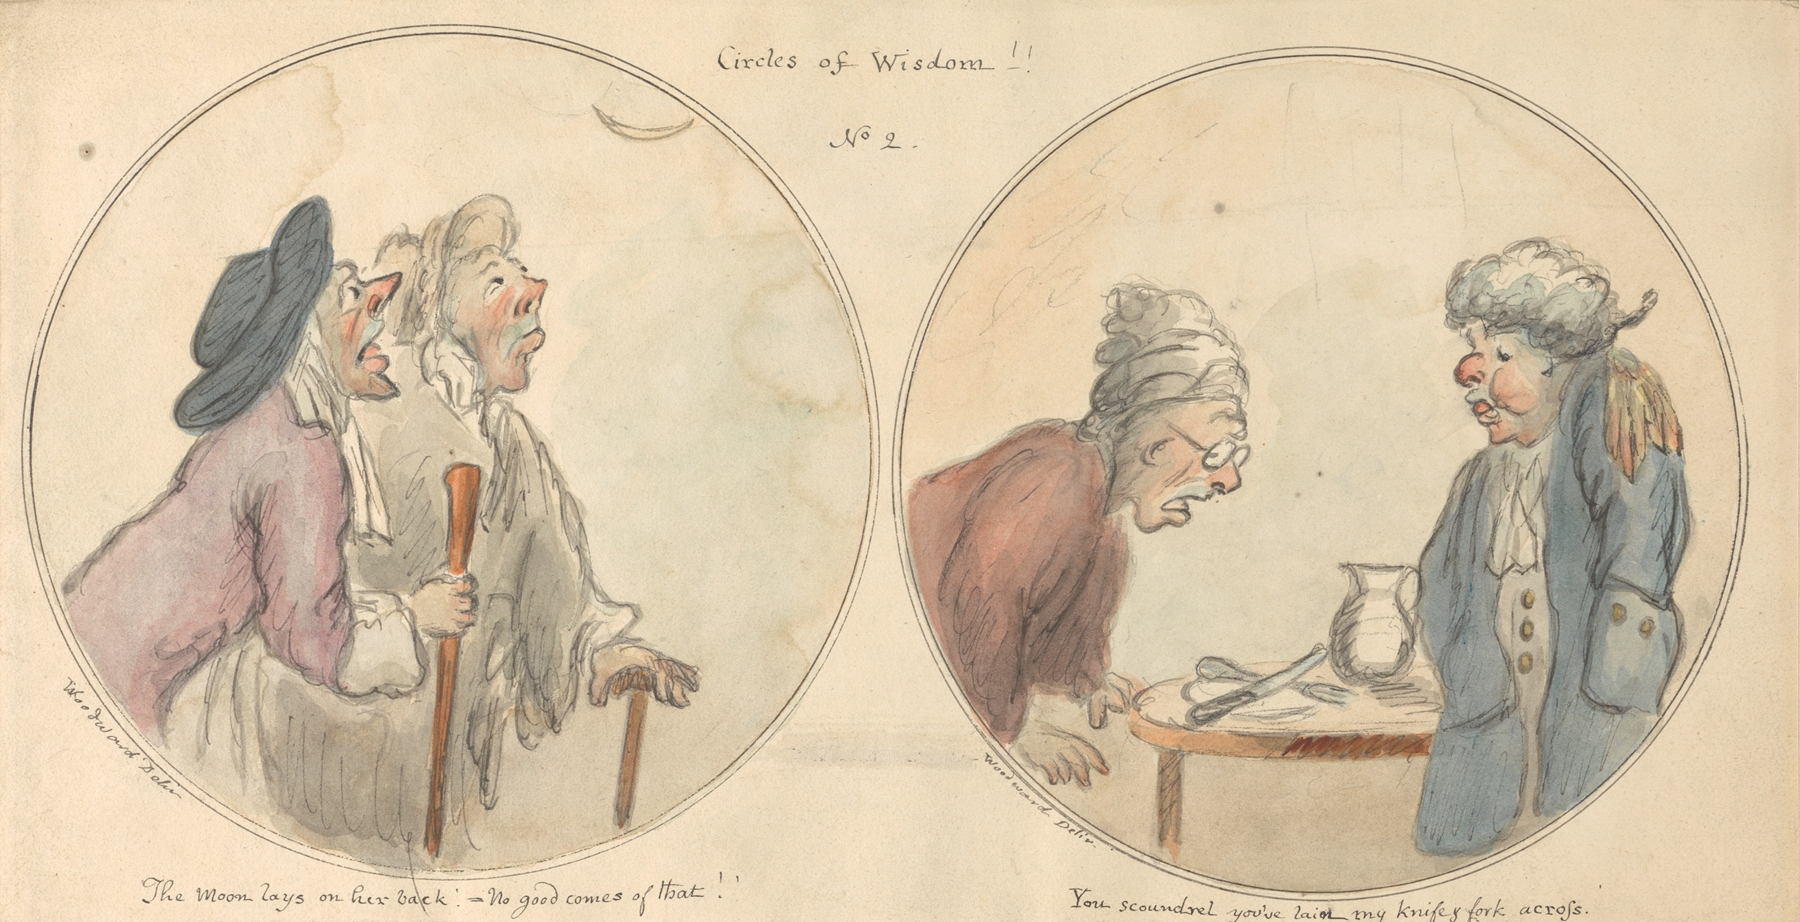 Circles of Wisdom!!
No 2.
Woodward Delin
The Moon lays on her back! = No good comes of that!!
Woodward Delin.
You scoundrel you've lain my knife & fork across.